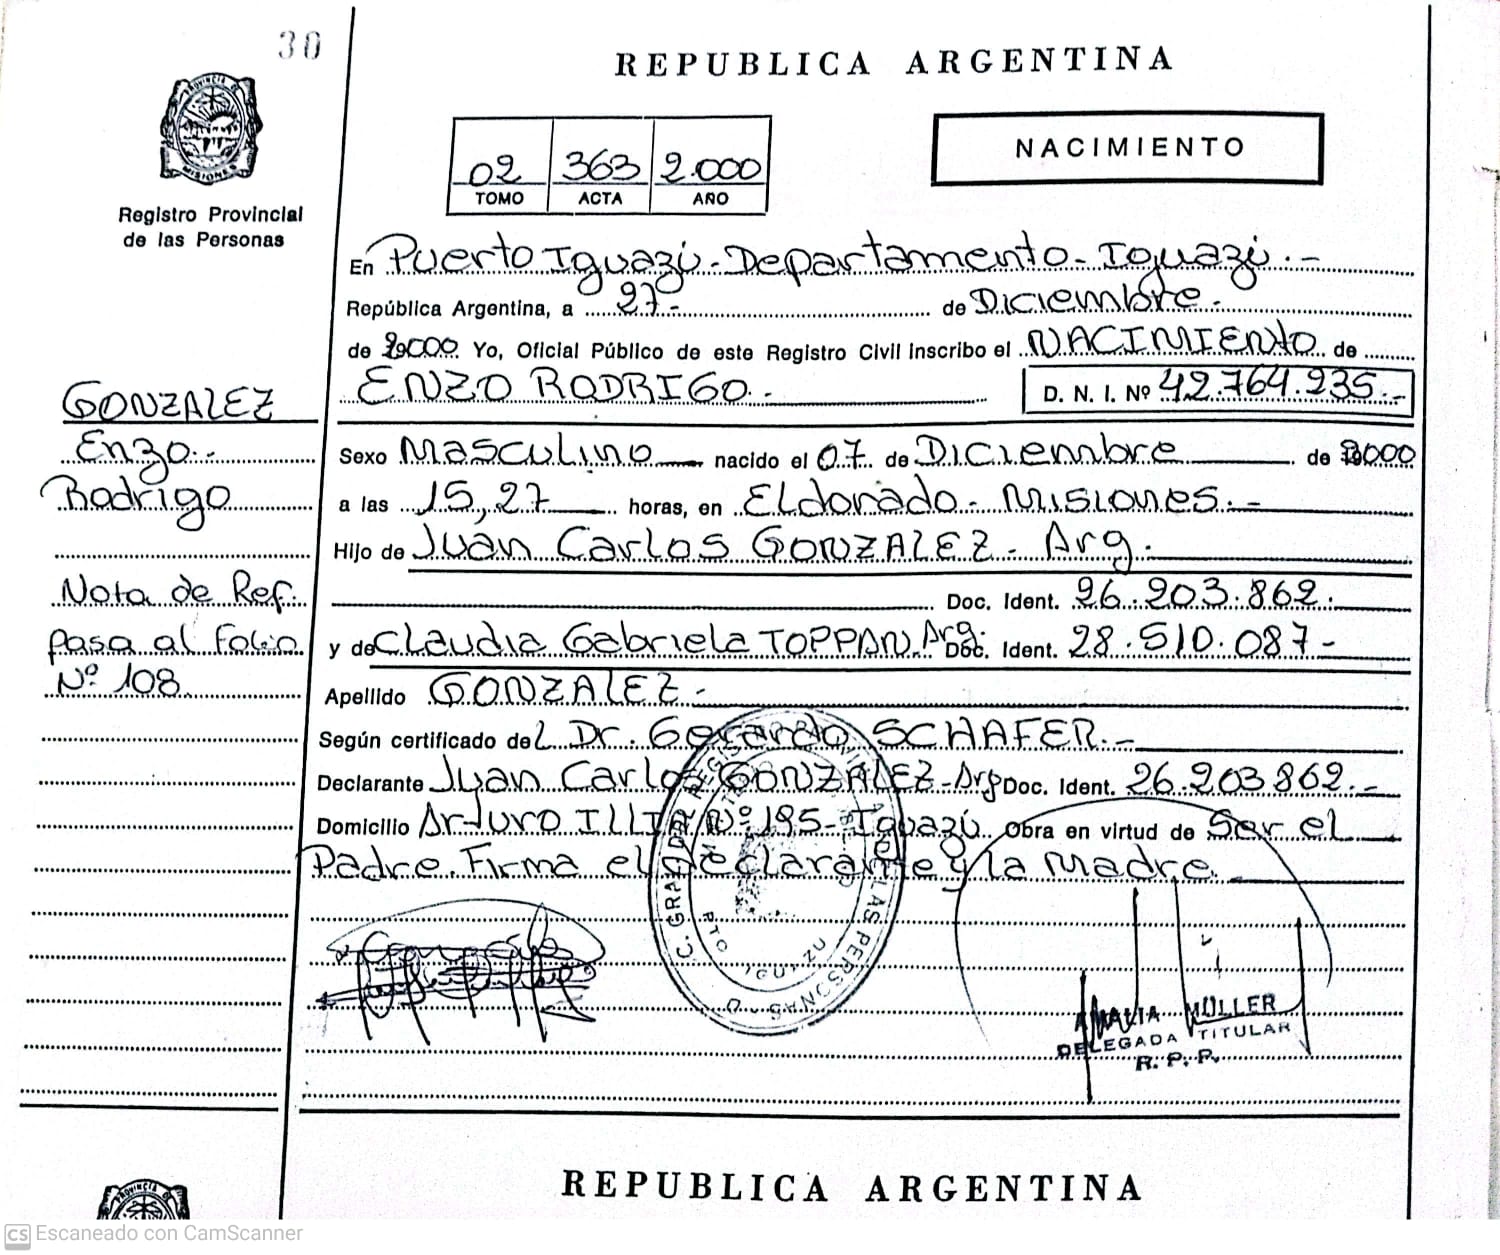 30
REPUBLICA ARGENTINA
02 363 2.000
TOMO ACTA AÑO
NACIMIENTO
PROVINCIA DE
MISIONES
Registro Provincial
de las Personas
En Puerto Iguazú - Departamento - Iguazú. -
República Argentina, a 27 - de Diciembre -
de 2000 Yo, Oficial Público de este Registro Civil Inscribo el NACIMIENTO de
ENZO RODRIGO. - D. N. I. Nº 42.764.235. -
GONZALEZ
Enzo. -
Rodrigo
Sexo Masculino nacido el 07 de Diciembre de 2000
a las 15,27 horas, en Eldorado - Misiones. -
Hijo de Juan Carlos GONZALEZ - Arg.
Doc. Ident. 26.203.862.
y de Claudia Gabriela TOPPAN. Arg. Doc. Ident. 28.510.087 -
Apellido GONZALEZ -
Nota de Ref.
pasa al Folio
Nº 108
Según certificado del Dr. Gerardo SCHAFER. -
Declarante Juan Carlos GONZALEZ - Arg Doc. Ident. 26.203.862. -
Domicilio Arturo ILLIA Nº 195 - Iguazú Obra en virtud de Ser el
Padre. Firma el declarante y la Madre. -
AMALIA MULLER
DELEGADA TITULAR
R. P. P.
REPUBLICA ARGENTINA
PROVINCIA
CS Escaneado con CamScanner